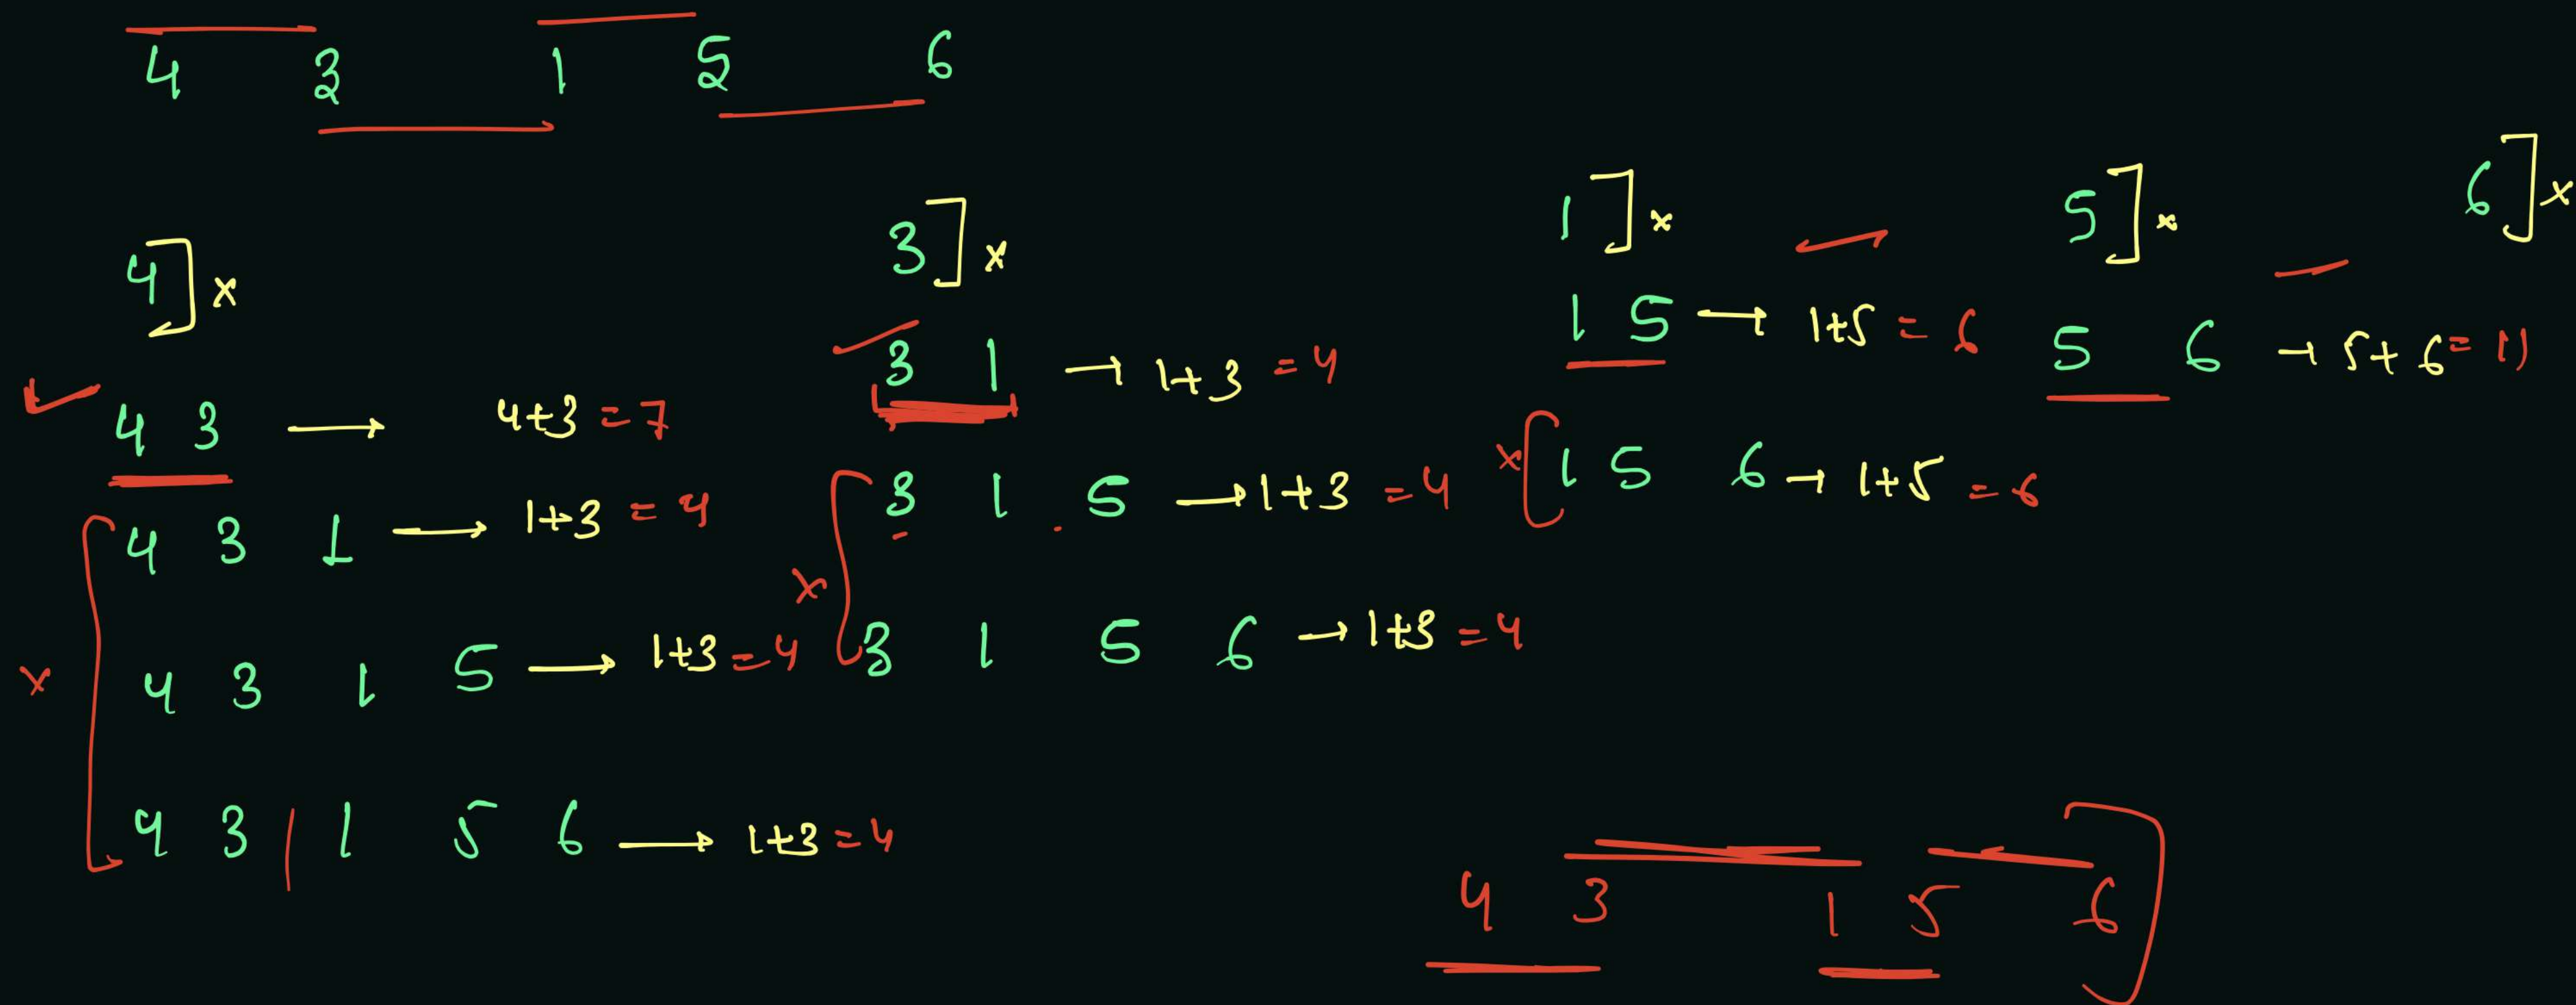 4 3 1 5 6
4] x
4 3 → 4+3 = 7
4 3 1 → 1+3 = 4
x [ 4 3 1 5 → 1+3 = 4
4 3 | 1 5 6 → 1+3 = 4
3] x
3 1 → 1+3 = 4
3 1 5 → 1+3 = 4
x [ 3 1 5 6 → 1+3 = 4
1] x
1 5 → 1+5 = 6
x [ 1 5 6 → 1+5 = 6
5] x
5 6 → 5+6 = 11
6] x
4 3 1 5 6 ]